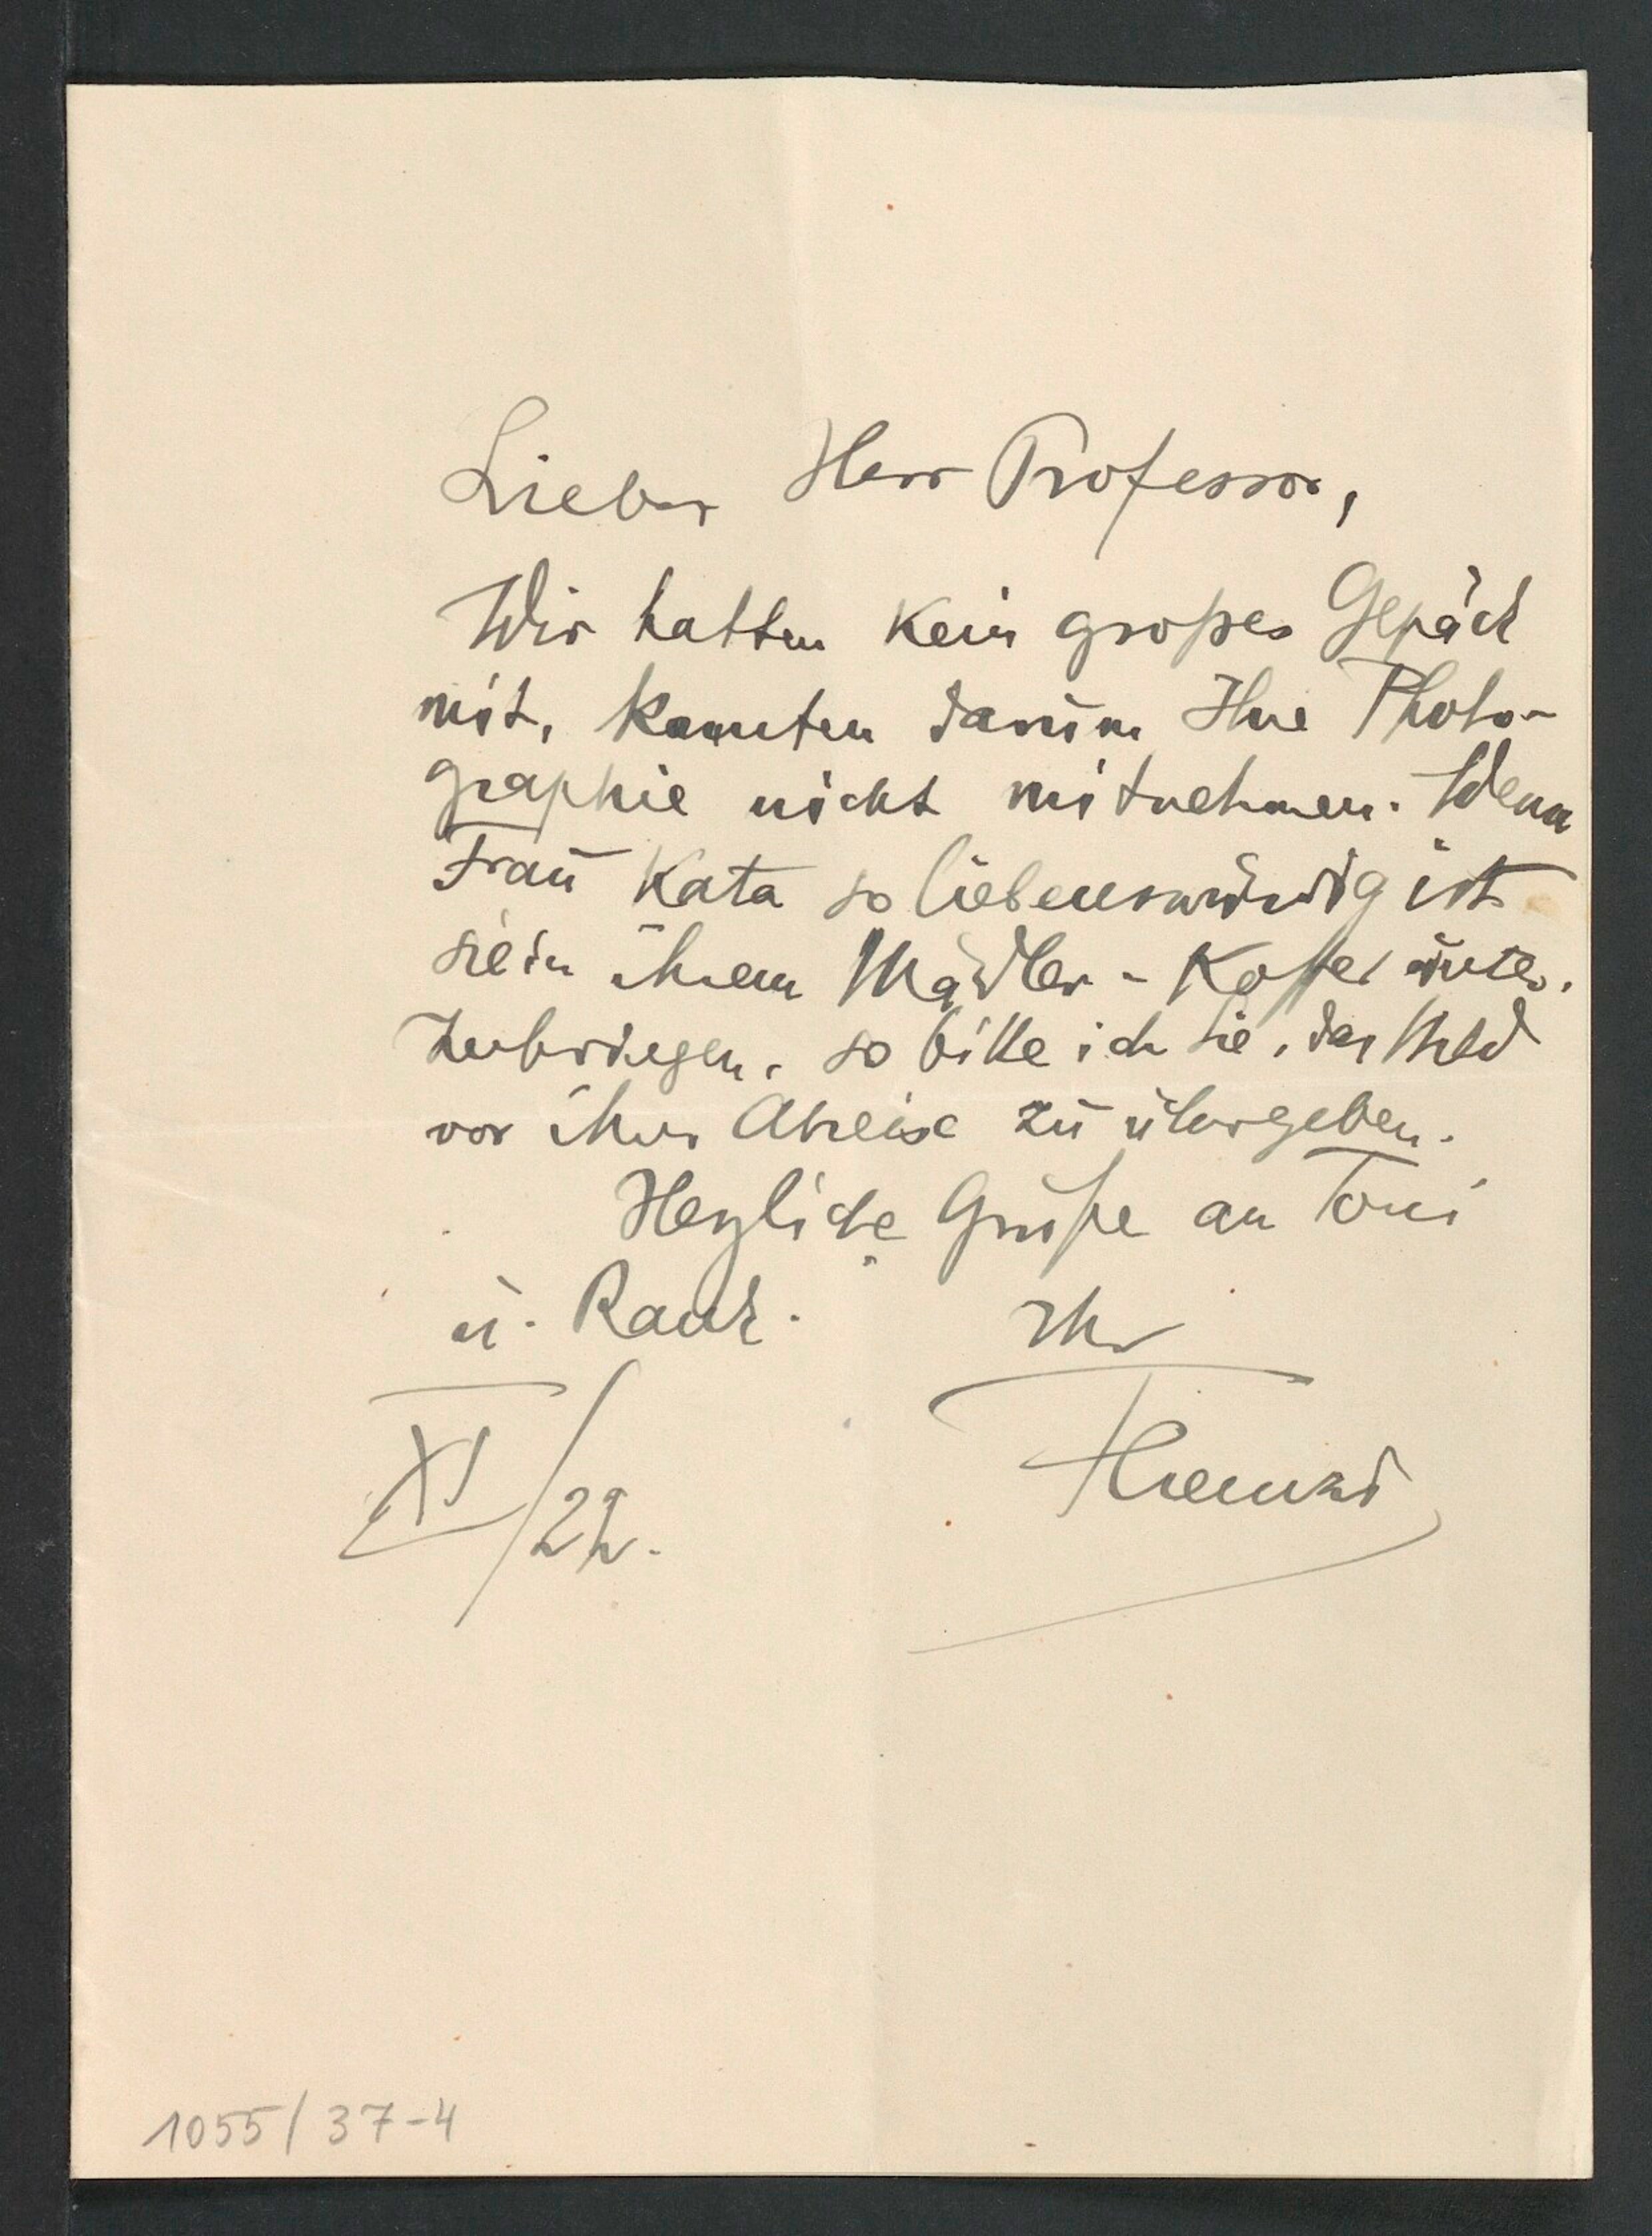 Lieber Herr Professor,
Wir hatten kein großes Gepäck
mit, konnten darum Ihre Photo-
graphie nicht mitnehmen. Wenn
Frau Kata so liebenswürdig ist
sie in ihrem Mädler-Koffer unter-
zubringen, so bitte ich Sie, das Bild
vor ihrer Abreise zu übergeben.
Herzliche Grüße an Toni
u. Rank. Ihr
XI/22.
1055/37-4